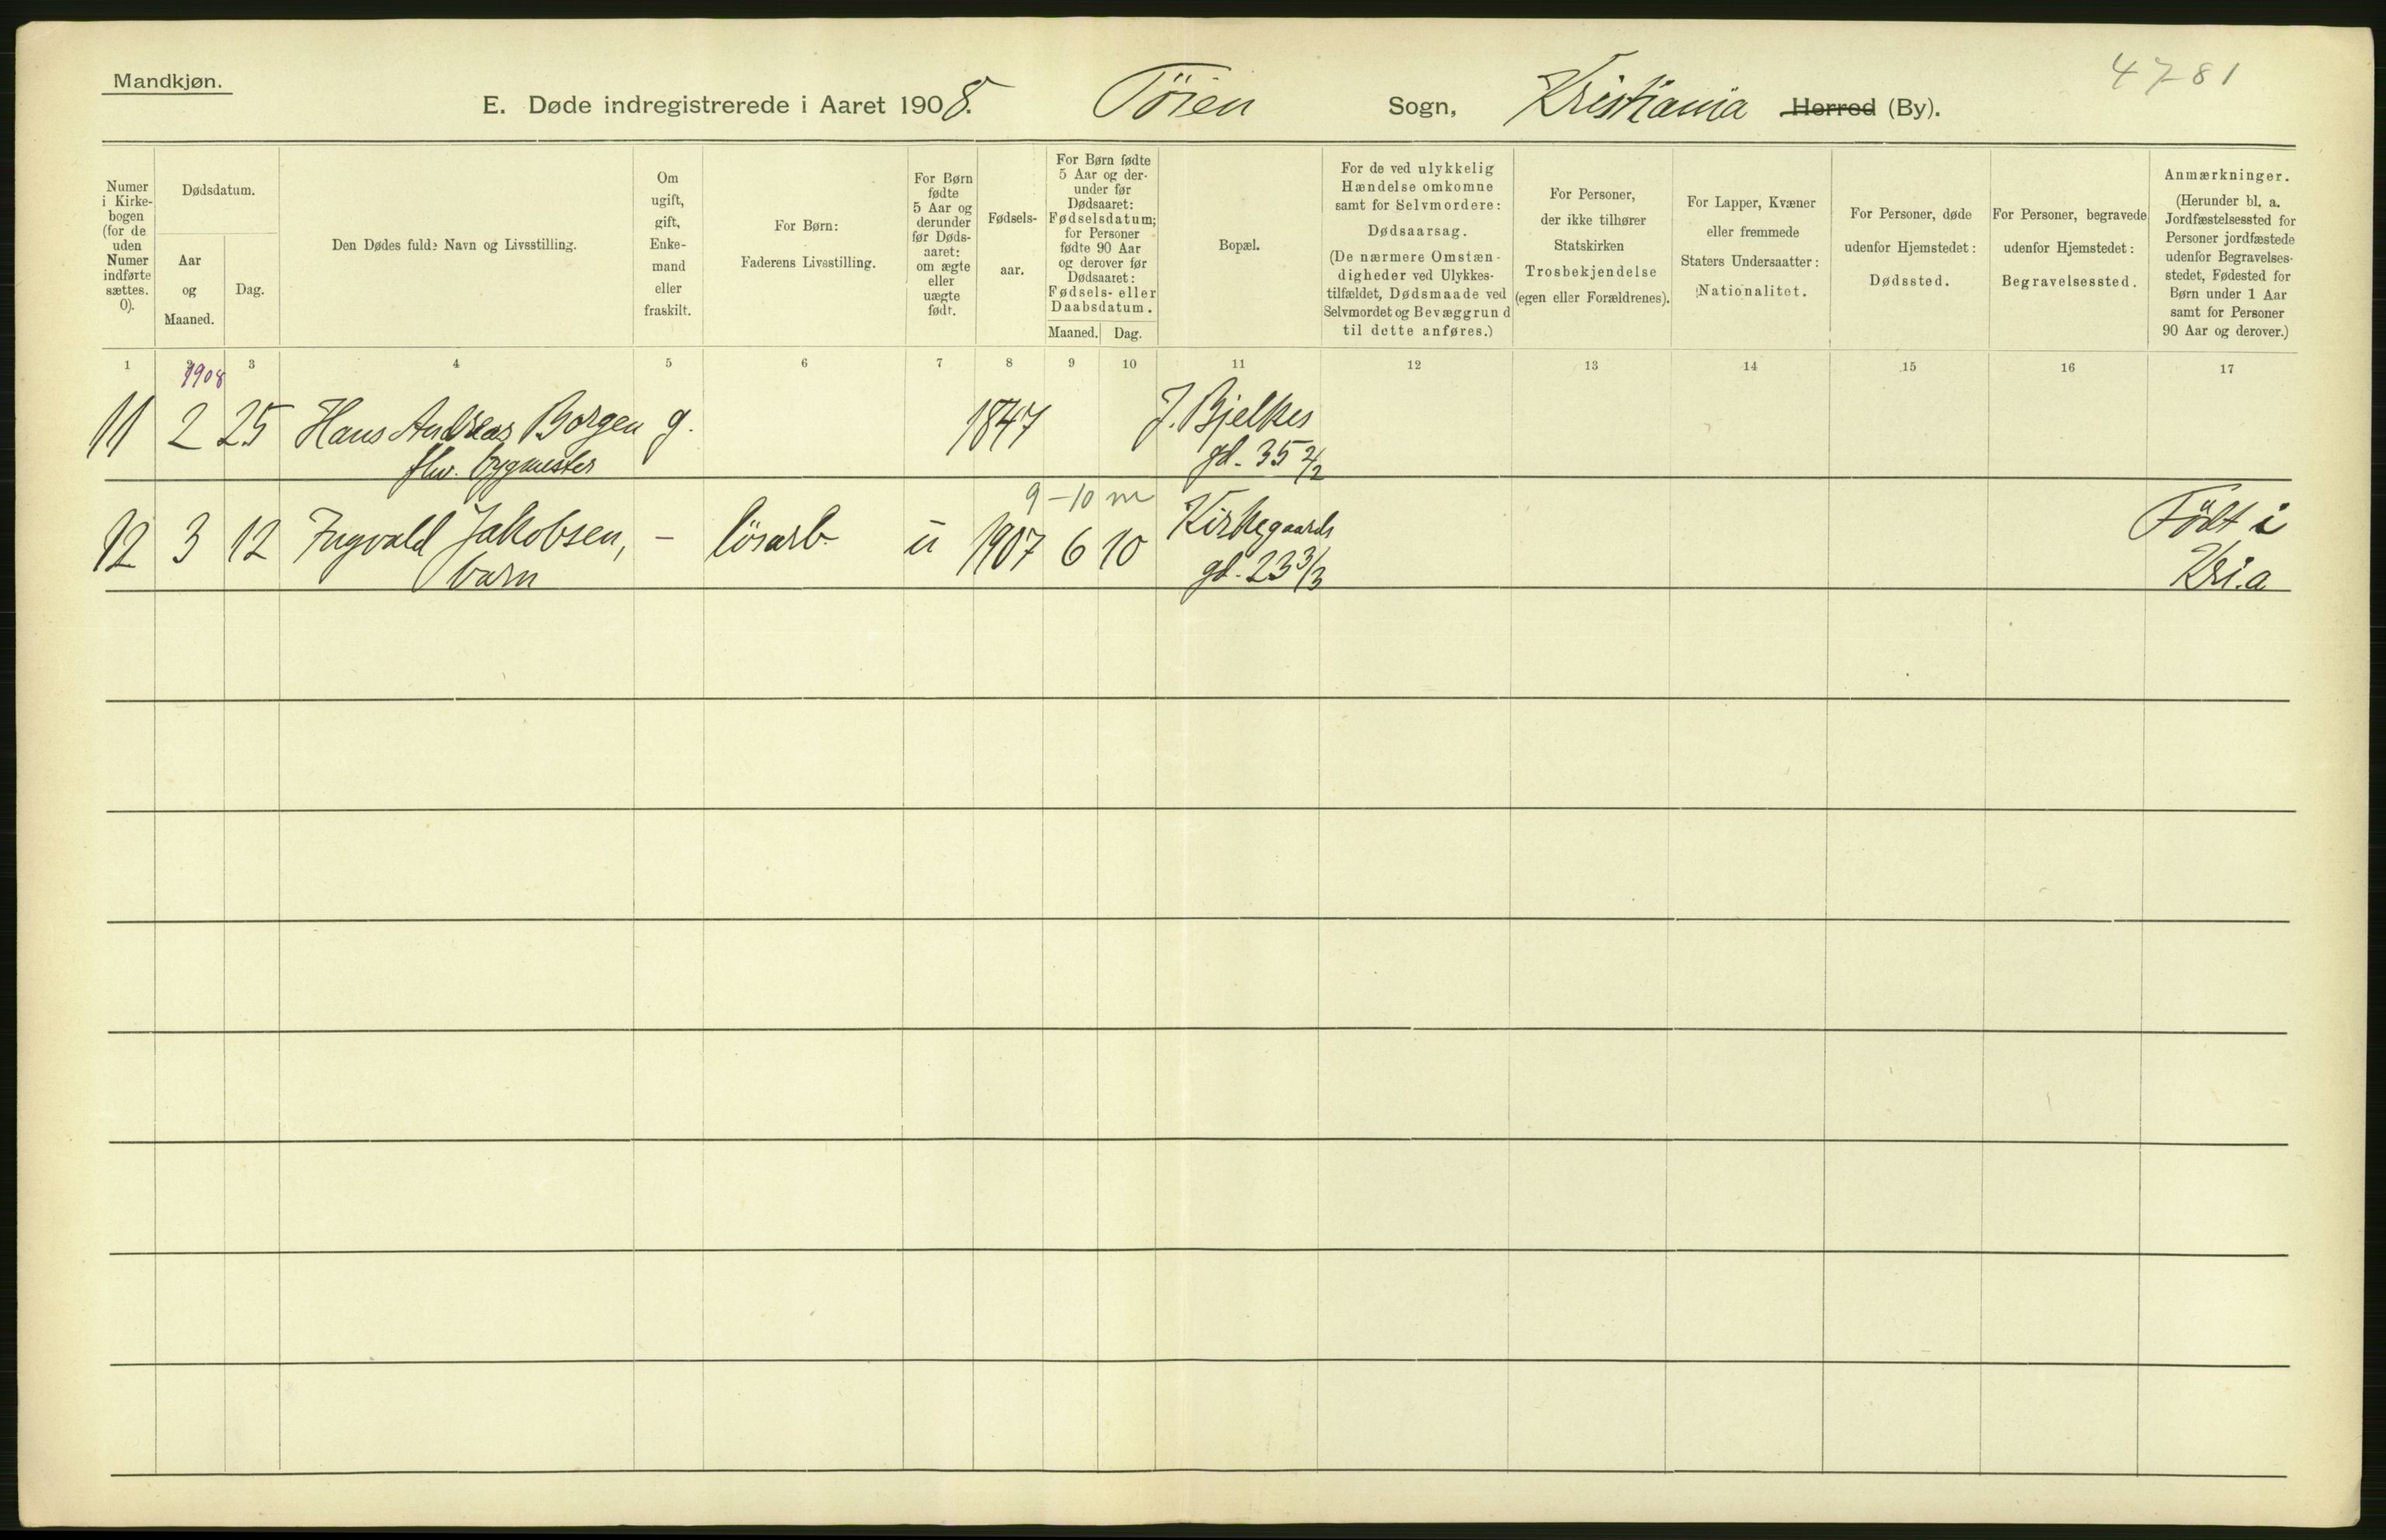 Mandkjøn.
4781
E. Døde indregistrerede i Aaret 1908. Töien Sogn, Kristiania Herred (By).
Numer i Kirkebogen (for de uden Numer indførte sættes. 0).
Dødsdatum.
Aar og Maaned.
Dag.
Den Dødes fulde Navn og Livsstilling.
Om ugift, gift, Enkemand eller fraskilt.
For Børn:
Faderens Livsstilling.
For Børn fødte 5 Aar og derunder før Dødsaaret: om ægte eller uægte født.
Fødselsaar.
For Børn fødte 5 Aar og derunder før Dødsaaret: Fødselsdatum; for Personer fødte 90 Aar og derover før Dødsaaret: Fødsels- eller Daabsdatum.
Maaned. Dag.
Bopæl.
For de ved ulykkelig Hændelse omkomne samt for Selvmordere:
Dødsaarsag.
(De nærmere Omstændigheder ved Ulykkestilfældet, Dødsmaade ved Selvmordet og Bevæggrund til dette anføres.)
For Personer, der ikke tilhører Statskirken
Trosbekjendelse
(egen eller Forældrenes).
For Lapper, Kvæner eller fremmede Staters Undersaatter:
Nationalitet.
For Personer, døde udenfor Hjemstedet:
Dødssted.
For Personer, begravede udenfor Hjemstedet:
Begravelsessted.
Anmærkninger.
(Herunder bl. a. Jordfæstelsessted for Personer jordfæstede udenfor Begravelsesstedet, Fødested for Børn under 1 Aar samt for Personer 90 Aar og derover.)
1 2 3 4 5 6 7 8 9 10 11 12 13 14 15 16 17
1908
11 2 25 Hans Andreas Borgen g. 1847 J. Bjelkes
fhv. bygmester gd. 35 2/2
9-10 m
12 3 12 Ingvald Jakobsen, - lösarb. u 1907 6 10 Kirkegaards Födt i
barn gd. 23 3/3 Kri.a